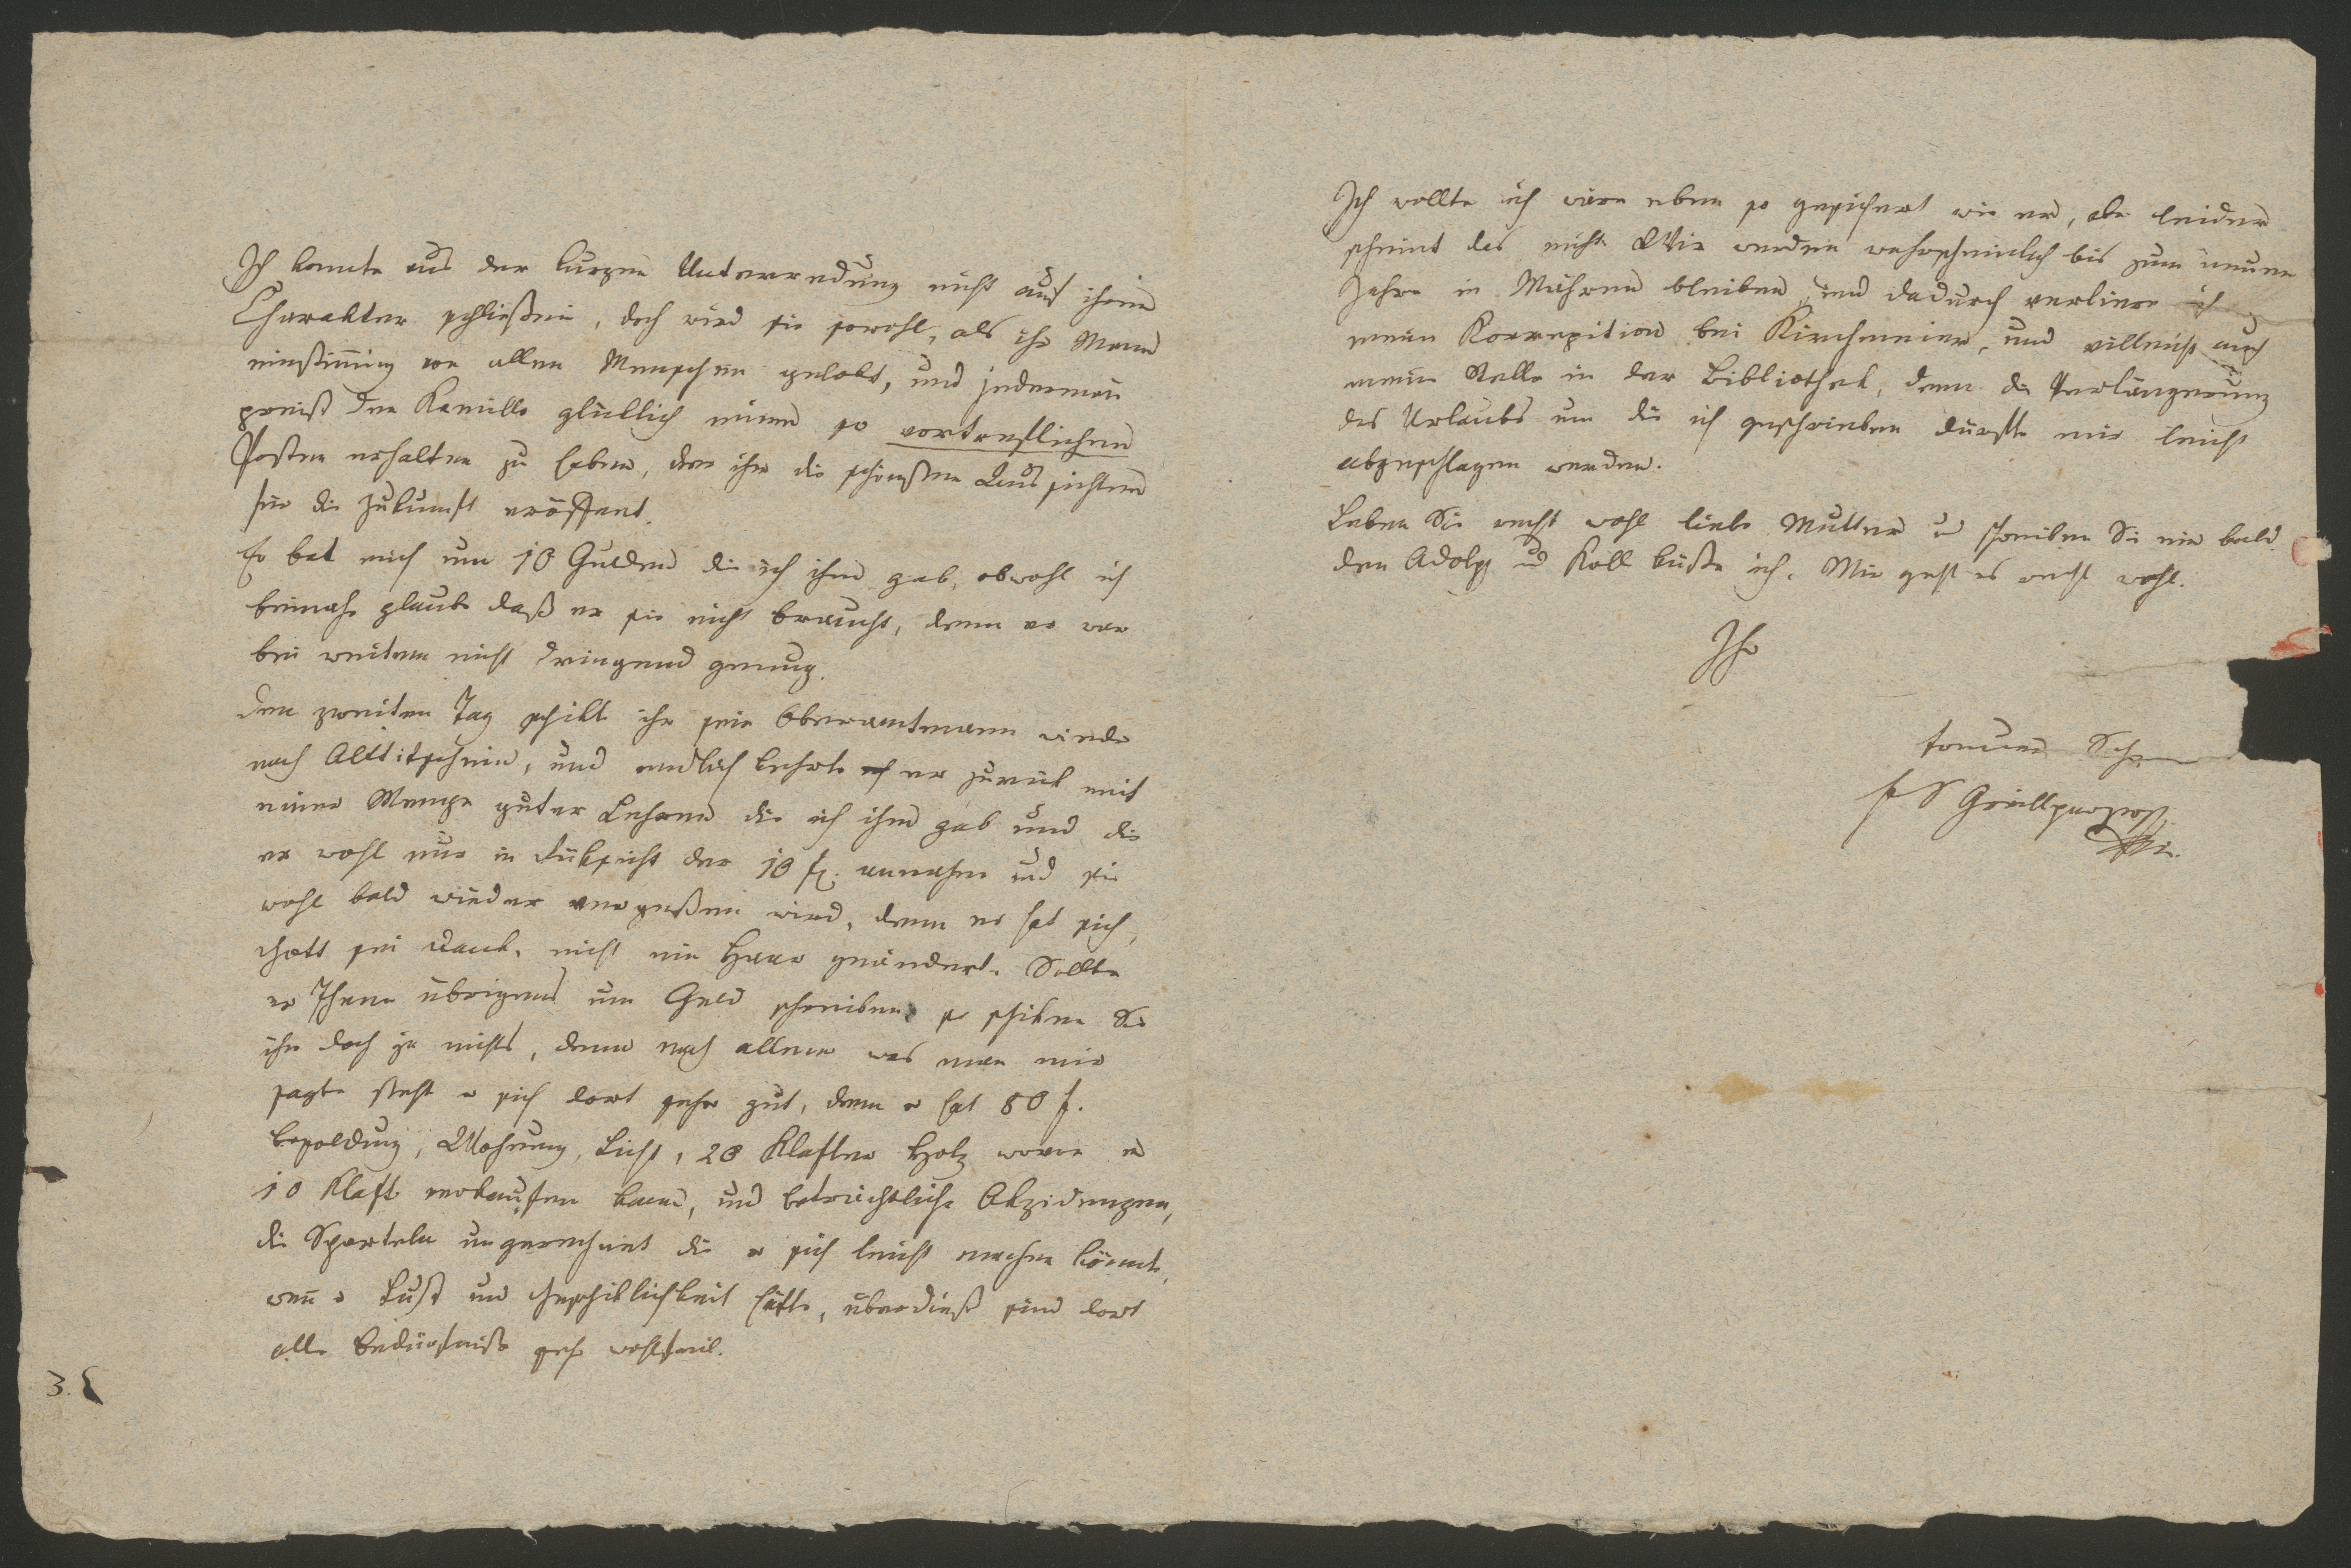 Ich konnte aus der kurzen Unterredung nicht auf ihren
Charakter schließen, doch wird sie sowohl, als ihr Mann
einstimmig von allen Menschen gelobt, und jederman̄
preist den Kamillo glücklich einen so vortreflichen
Posten erhalten zu haben, der ihm die schönsten Aussichten
für die Zukunft eröffnet.
Er bat mich um 10 Gulden die ich ihm gab, obwohl ich
beinahe glaube daß er sie nicht braucht, denn er war
bei weitem nicht dringend genug.
Den zweiten Tag schikte ihn sein Oberamtmann wieder
nach Alttitschein, und endlich kehrte er zurük mit
einer Menge guter Lehren die ich ihm gab und die
er wohl nur in Rüksicht der 10 f. annahm und sie
wohl bald wieder vergeßen wird, denn er hat sich,
Gott sei Dank, nicht ein Haar geändert. Sollte
er Ihnen übrigens um Geld schreiben, so schiken Sie
ihm doch ja nichts, denn nach allem was man mir
sagte steht er sich dort sehr gut, denn er hat 80 f.
Besoldung, Wohnung, Licht, 20 Klafter Holz wovon er
10 Klaft verkaufen kann, und beträchtliche Akzidenzen,
die Sporteln ungerechnet die er sich leicht machen könnte,
wen̄ er Lust und Geschiklichkeit hätte, überdieß sind dort
alle Bedürfniße sehr wohlfeil.
3.
Ich wollte ich wäre eben so gesichert wie er, aber leider
scheint das nicht. Wir werden wahrscheinlich bis zum neuen
Jahre in Mähren bleiben, und dadurch verliere ich
meine Korrepition bei Kirchmeier, und villeicht auch
meine Stelle in der Bibliothek, denn die Verlängerung
des Urlaubs um die ich geschrieben dürfte mir leicht
abgeschlagen werden.
Leben Sie recht wohl liebe Mutter und schreiben Sie mir bald.
den Adolph und Karl küße ich. Mir geht es recht wohl.
Ihr
treuer Sohn
F S Grillparzer